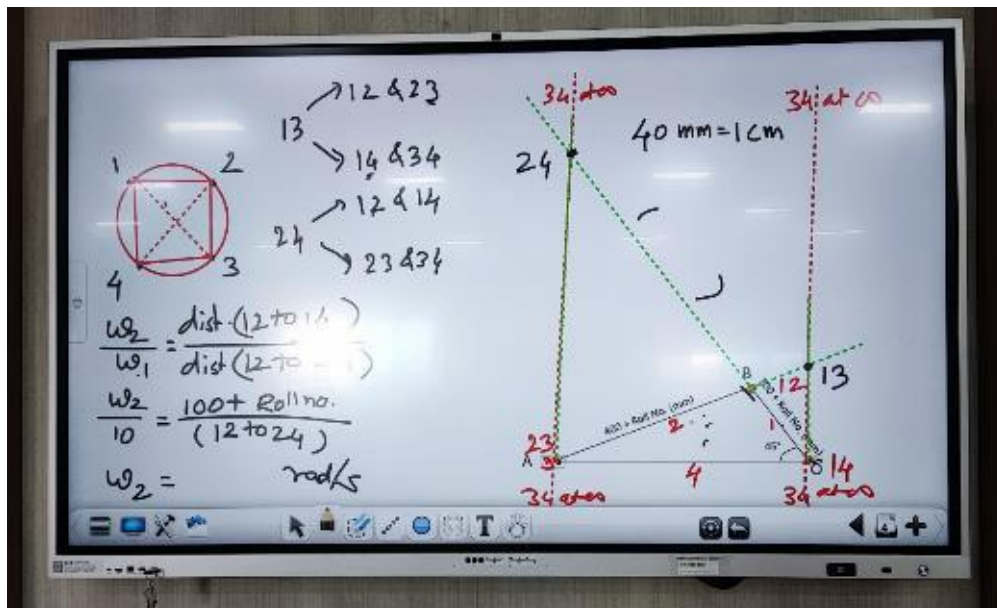 12 & 23
13
14 & 34
12 & 14
24
23 & 34
1 2
4 3
ω2/ω1 = dist. (12 to 14) / dist (12 to
ω2/10 = 100 + Roll no. / (12 to 24)
ω2 = rad/s
34 at ∞
34 at ∞
40 mm = 1 cm
24
B
12
13
+ Roll No. (mm)
+ Roll No.
2
1
23
A
3
4
O
14
34 at ∞
34 at ∞
T